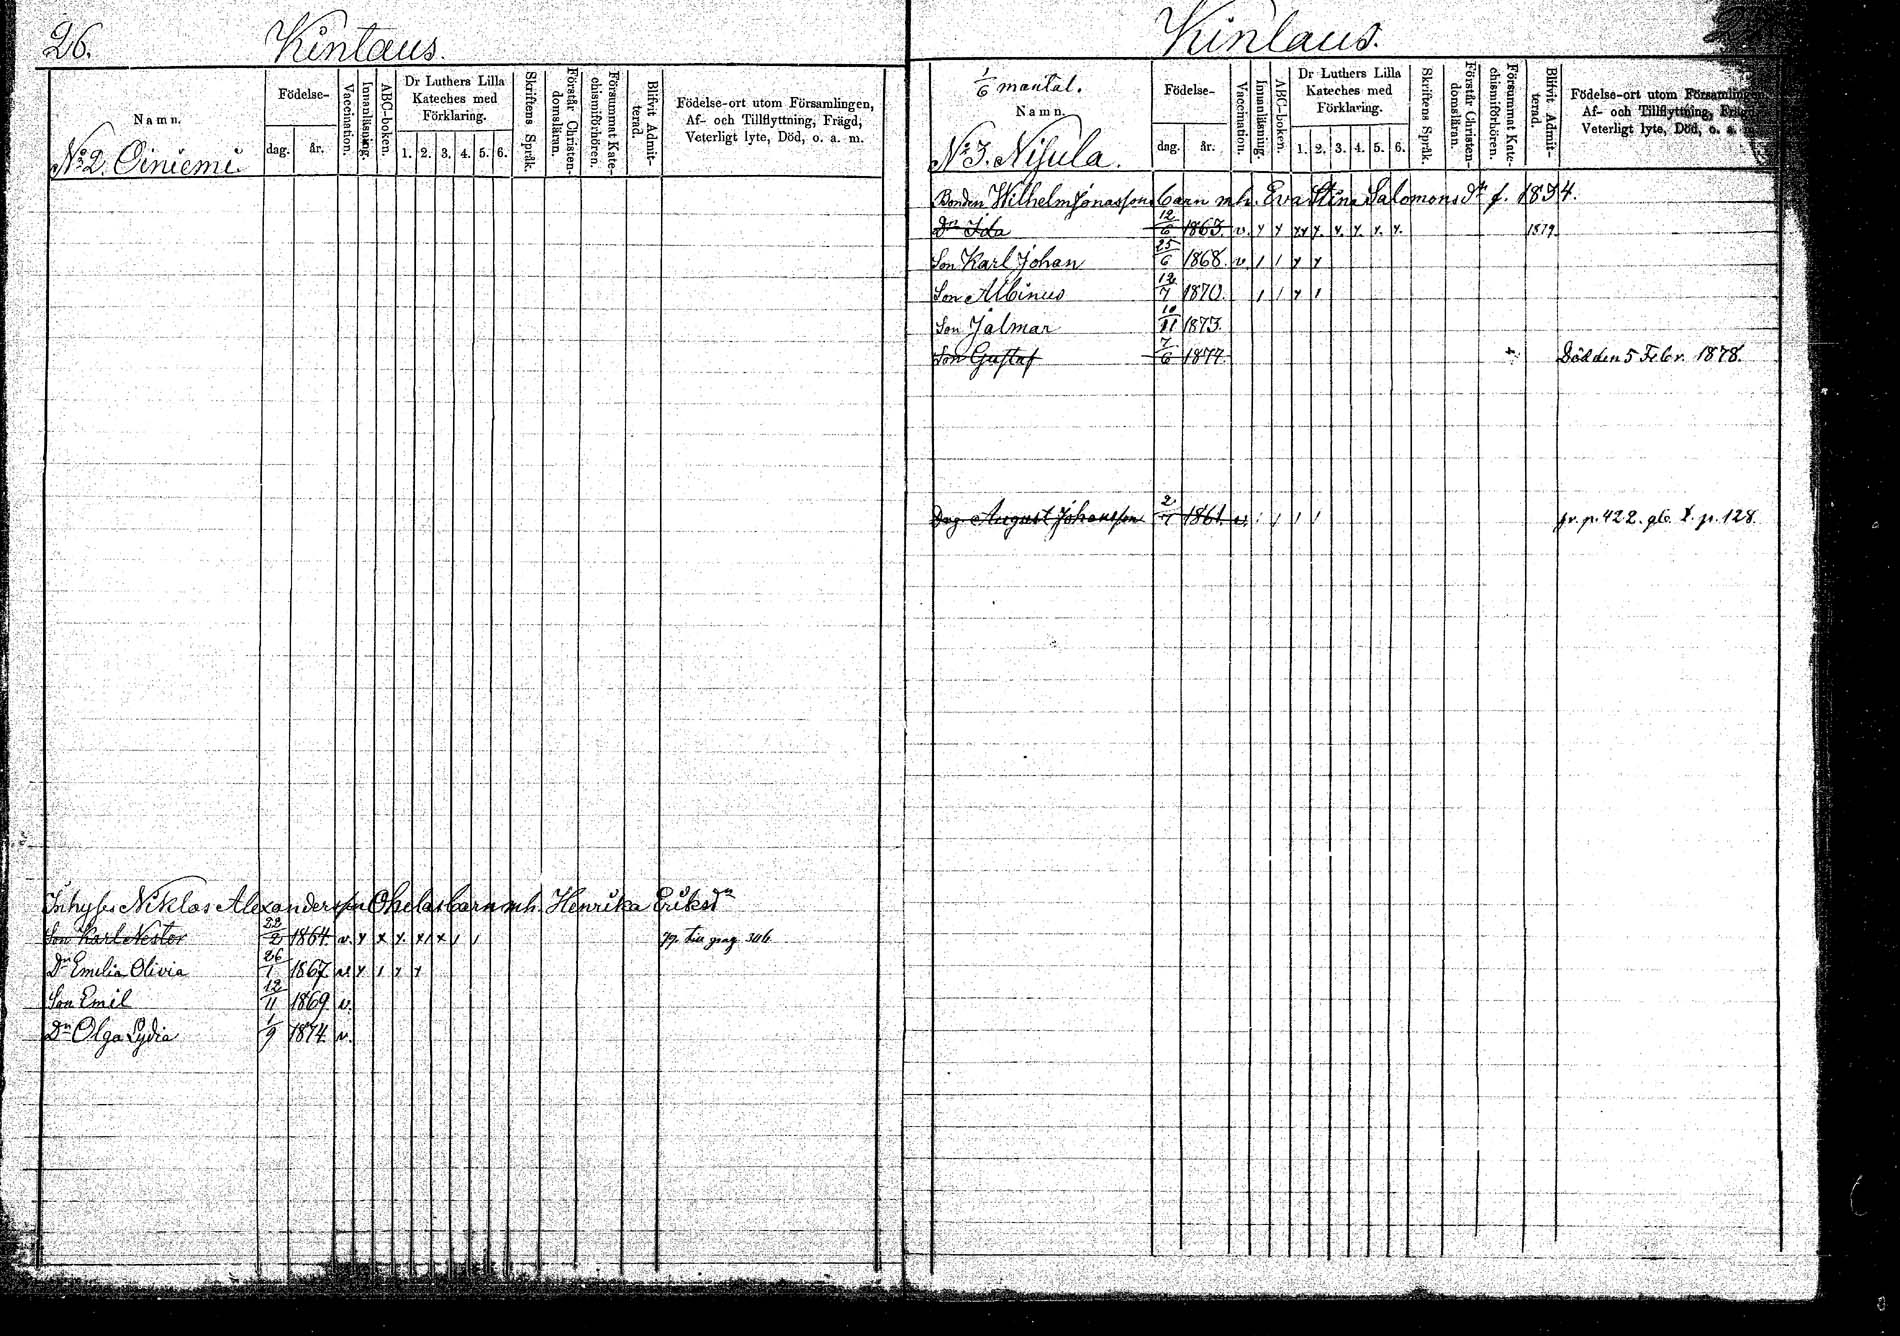 26.
Kintaus.
Namn.
Födelse-
dag.
år.
Vaccination.
Innanläsning.
ABC-boken.
Dr Luthers Lilla
Kateches med
Förklaring.
1. 2. 3. 4. 5. 6.
Skriftens Språk.
Förstår Christen-
domsläran.
Försummat Kate-
chismiförhören.
Blifvit Admit-
terad.
Födelse-ort utom Församlingen,
Af- och Tillflyttning, Frägd,
Veterligt lyte, Död, o. a. m.
No 2. Oiniemi
Inhyses Niklas Alexandersson Ohelas barn mh. Henrika Eriksdr
Son Karl Nestor 22/2 1864. v. x x x. x1 x 1 1
Dr Emelia Olivia 26/1 1867 v. x 1 x x
Son Emil 12/11 1869 v.
Dr Olga Lydia 1/9 1874. v.
Kintaus.
1/6 mantal.
Namn.
Födelse-
dag.
år.
Vaccination.
Innanläsning.
ABC-boken.
Dr Luthers Lilla
Kateches med
Förklaring.
1. 2. 3. 4. 5. 6.
Skriftens Språk.
Förstår Christen-
domsläran.
Försummat Kate-
chismiförhören.
Blifvit Admit-
terad.
Födelse-ort utom Församlingen,
Af- och Tillflyttning, Frägd,
Veterligt lyte, Död, o. a. m.
No 3. Nisula.
Bonden Wilhelm Jonassons barn mh. Eva Stina Salomonsdr f. 1834.
Dr Ida 12/6 1863. v. x x xx x. x. x. x. x. 1879.
Son Karl Johan 25/6 1868. v. 1 1 x x
Son Albinus 12/7 1870. 1 1 x 1
Son Jalmar 10/11 1873.
Son Gustaf 7/6 1877. Död den 5 Febr. 1878.
Drg. August Johansson 2/7 1861. v. 1 1 1 1 fr. p. 422. p. 128.